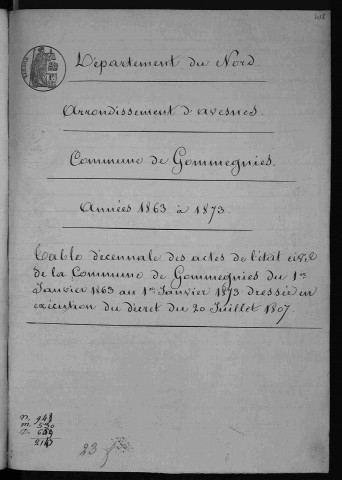 Département du Nord
Arrondissement d'avesnes.
Commune de Gommegnies.
Années 1863 à 1873.
Table décennale des actes de l'état civil
de la Commune de Gommegnies du 1er
Janvier 1863 au 1er Janvier 1873 dressée en
exécution du décret du 20 Juillet 1807.
n.
m.
23